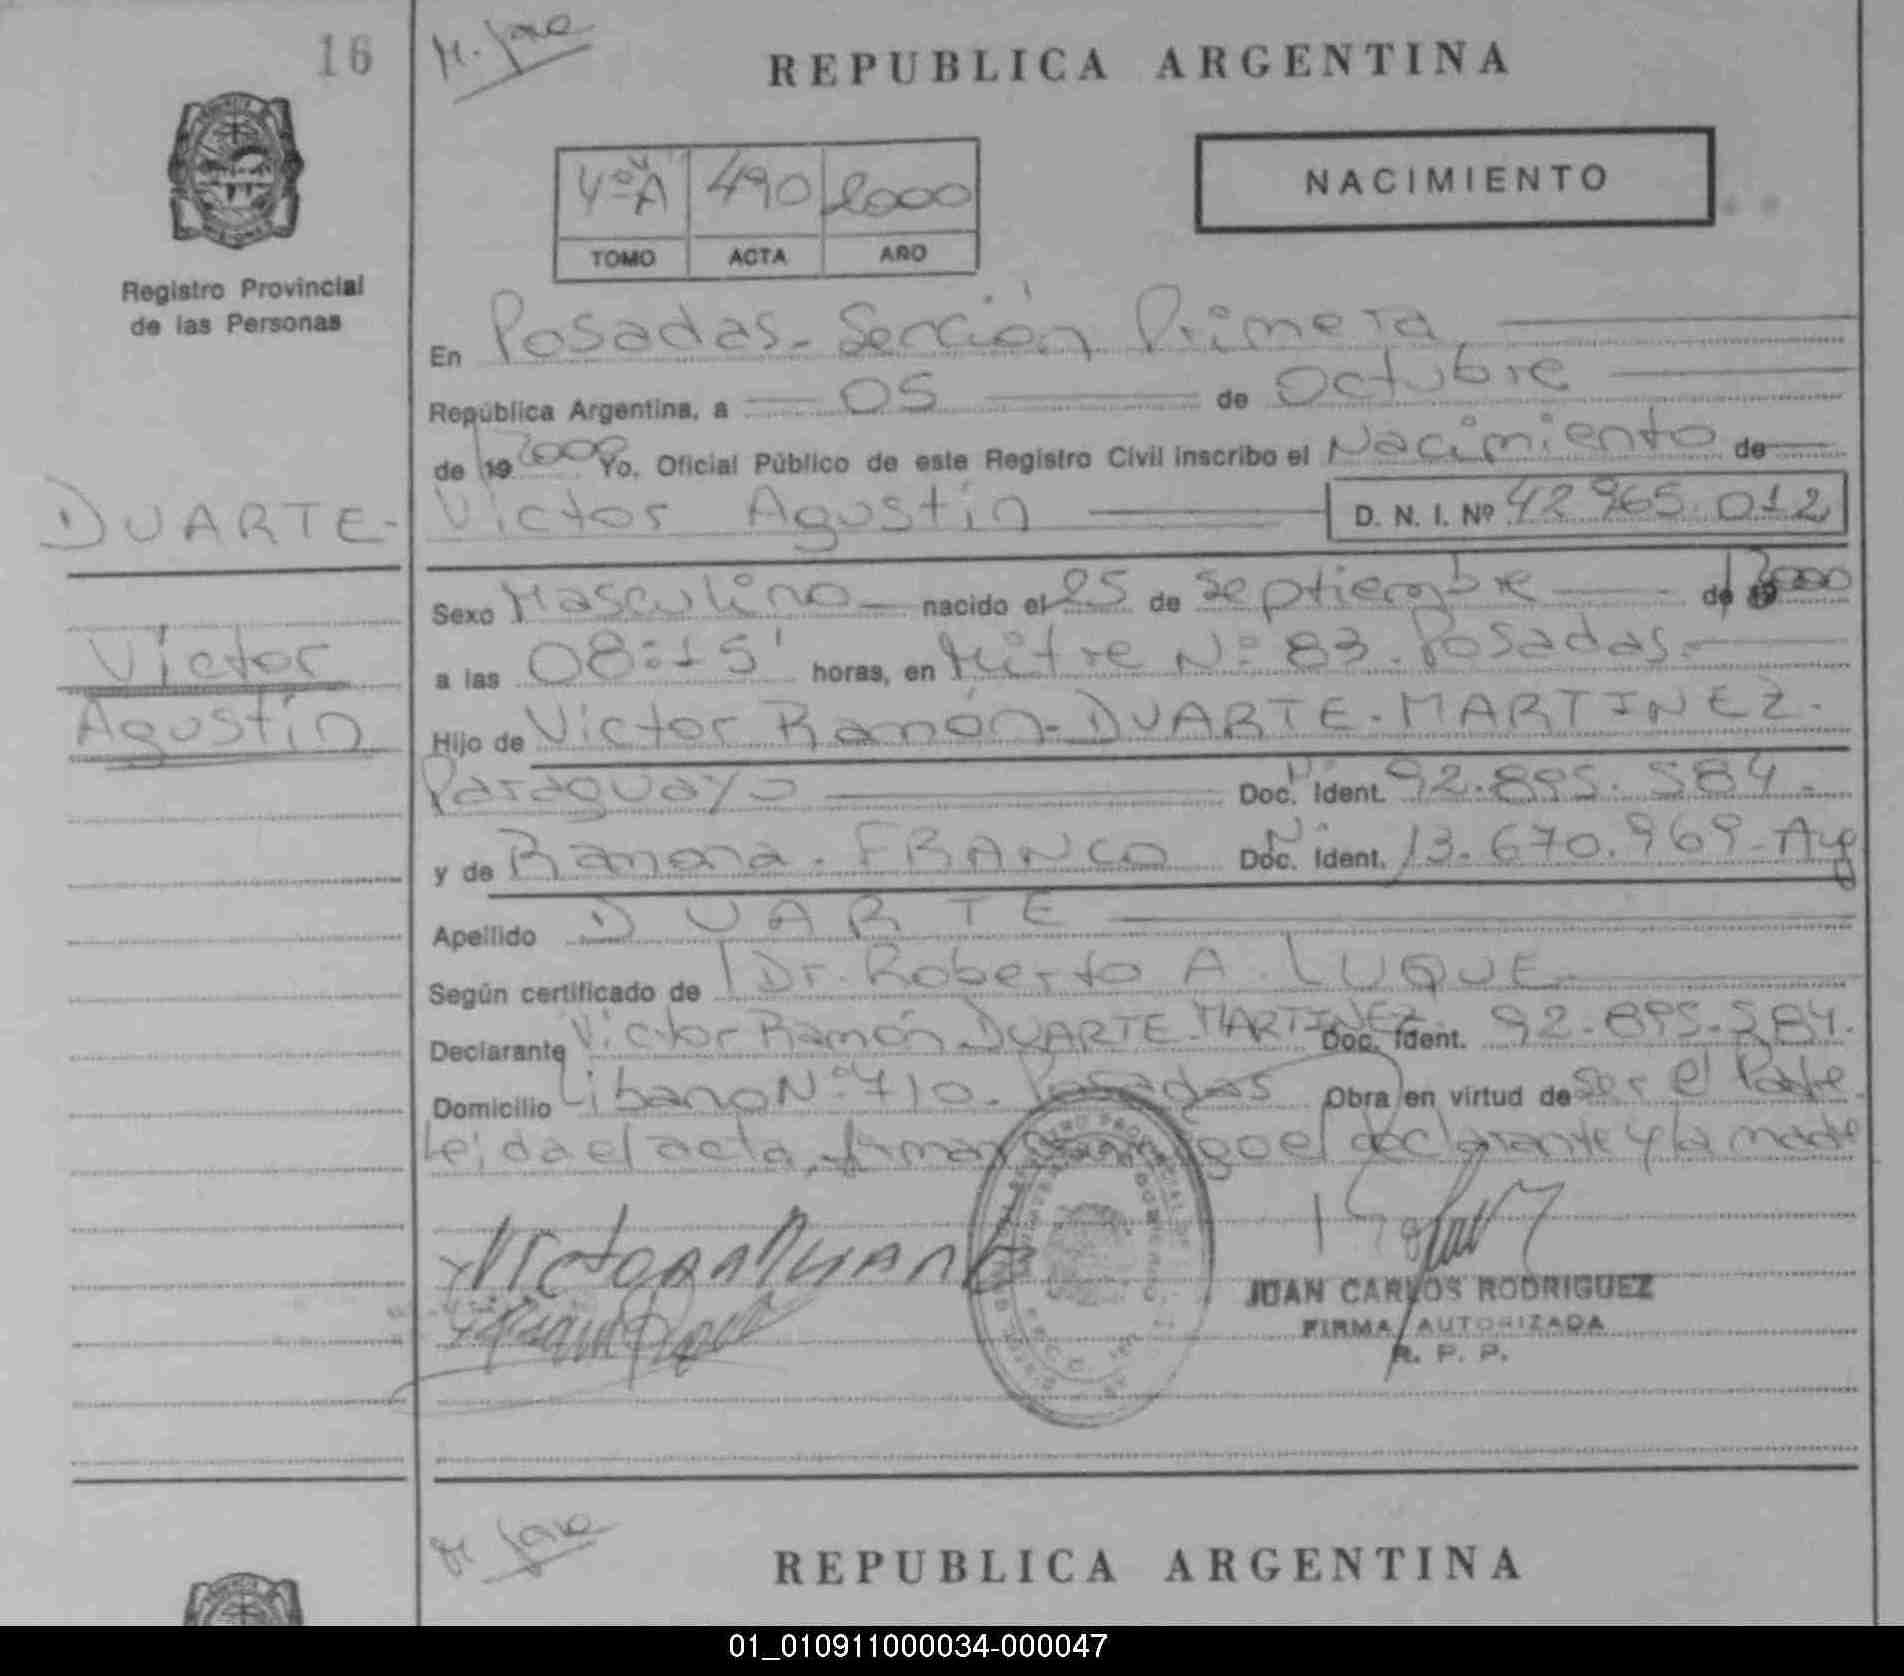 16
M. Jose
REPUBLICA ARGENTINA
4ºA 490 2000
TOMO ACTA AÑO
NACIMIENTO
Registro Provincial
de las Personas
En Posadas - Sección Primera
República Argentina, a 05 de Octubre
de 19 2000 Yo, Oficial Público de este Registro Civil inscribo el Nacimiento de
DUARTE - Victor Agustín D. N. I. Nº 42965.012
Sexo Masculino nacido el 25 de Septiembre de 2000
Victor
a las 08:15' horas, en Mitre Nº 83. Posadas.
Agustín
Hijo de Victor Ramón - DUARTE - MARTINEZ.
Paraguayo Doc. Ident. 92.895.584.
y de Ramona. FRANCO Doc. Ident. 13.670.969 - Arg
Apellido DUARTE
Según certificado de Dr. Roberto A. LUQUE
Declarante Victor Ramón DUARTE - MARTINEZ Doc. Ident. 92.895.584.
Domicilio Libano Nº 710. Posadas Obra en virtud de ser el Padre.
Leida el acta, firman conmigo el declarante y la madre
JUAN CARLOS RODRIGUEZ
FIRMA AUTORIZADA
R. P. P.
M Jose
REPUBLICA ARGENTINA
01_010911000034-000047